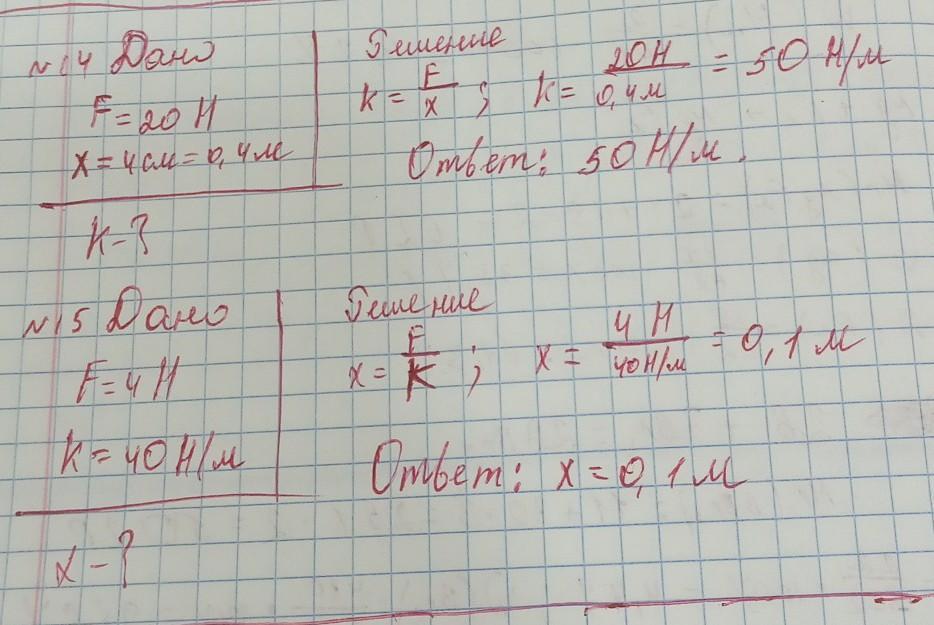 №4 Дано
F=20 Н
x=4см=0,4м
k-?
Решение
k=F/x; k=20Н/0,4м=50 Н/м
Ответ: 50 Н/м.
№5 Дано
F=4Н
k=40Н/м
x-?
Решение
x=F/k; x=4 Н/40Н/м=0,1 м
Ответ: x=0,1м